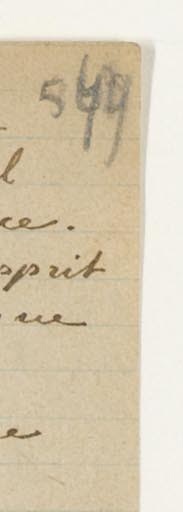 549
l
ce.
sprit
ne
e